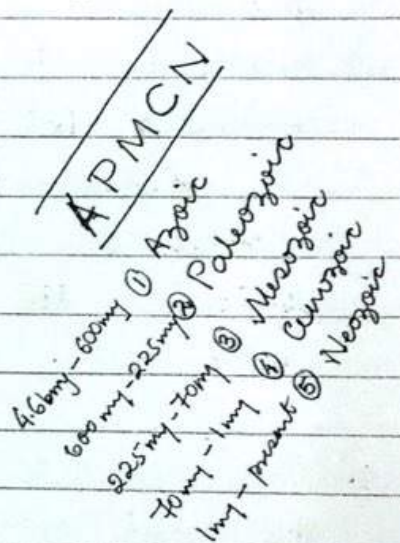 APMCN
4.6bmy - 600my ① Azoic
600my - 225my ② Paleozoic
225my - 70my ③ Mesozoic
70my - 1my ④ Cenozoic
1my - present ⑤ Neozoic